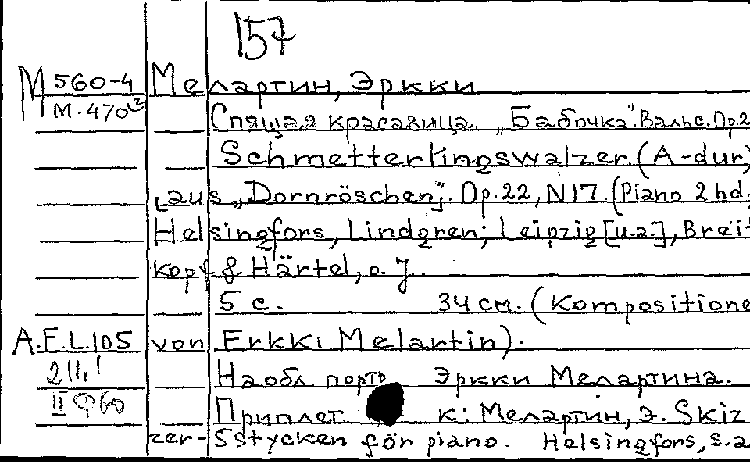 157
М 560-4 Мелартин, Эркки
М.470
Спящая красавица. „Бабочка". Вальс. Op.2
Schmetterlingswalzer. (A-dur)
[aus „Dornröschen". Op. 22, N17. (Piano 2 hd.
Helsingfors, Lindgren; Leipzig [u.a.], Breit
kopf & Härtel, o. J.
5 с. 34 см. (Kompositione
A.E.L.105 von Erkki Melartin).
На обл. порт. Эркки Мелартина.
II 60 Приплет. к: Мелартин, Э. Skiz
zer - 5 stycken för piano. Helsingfors, s.a